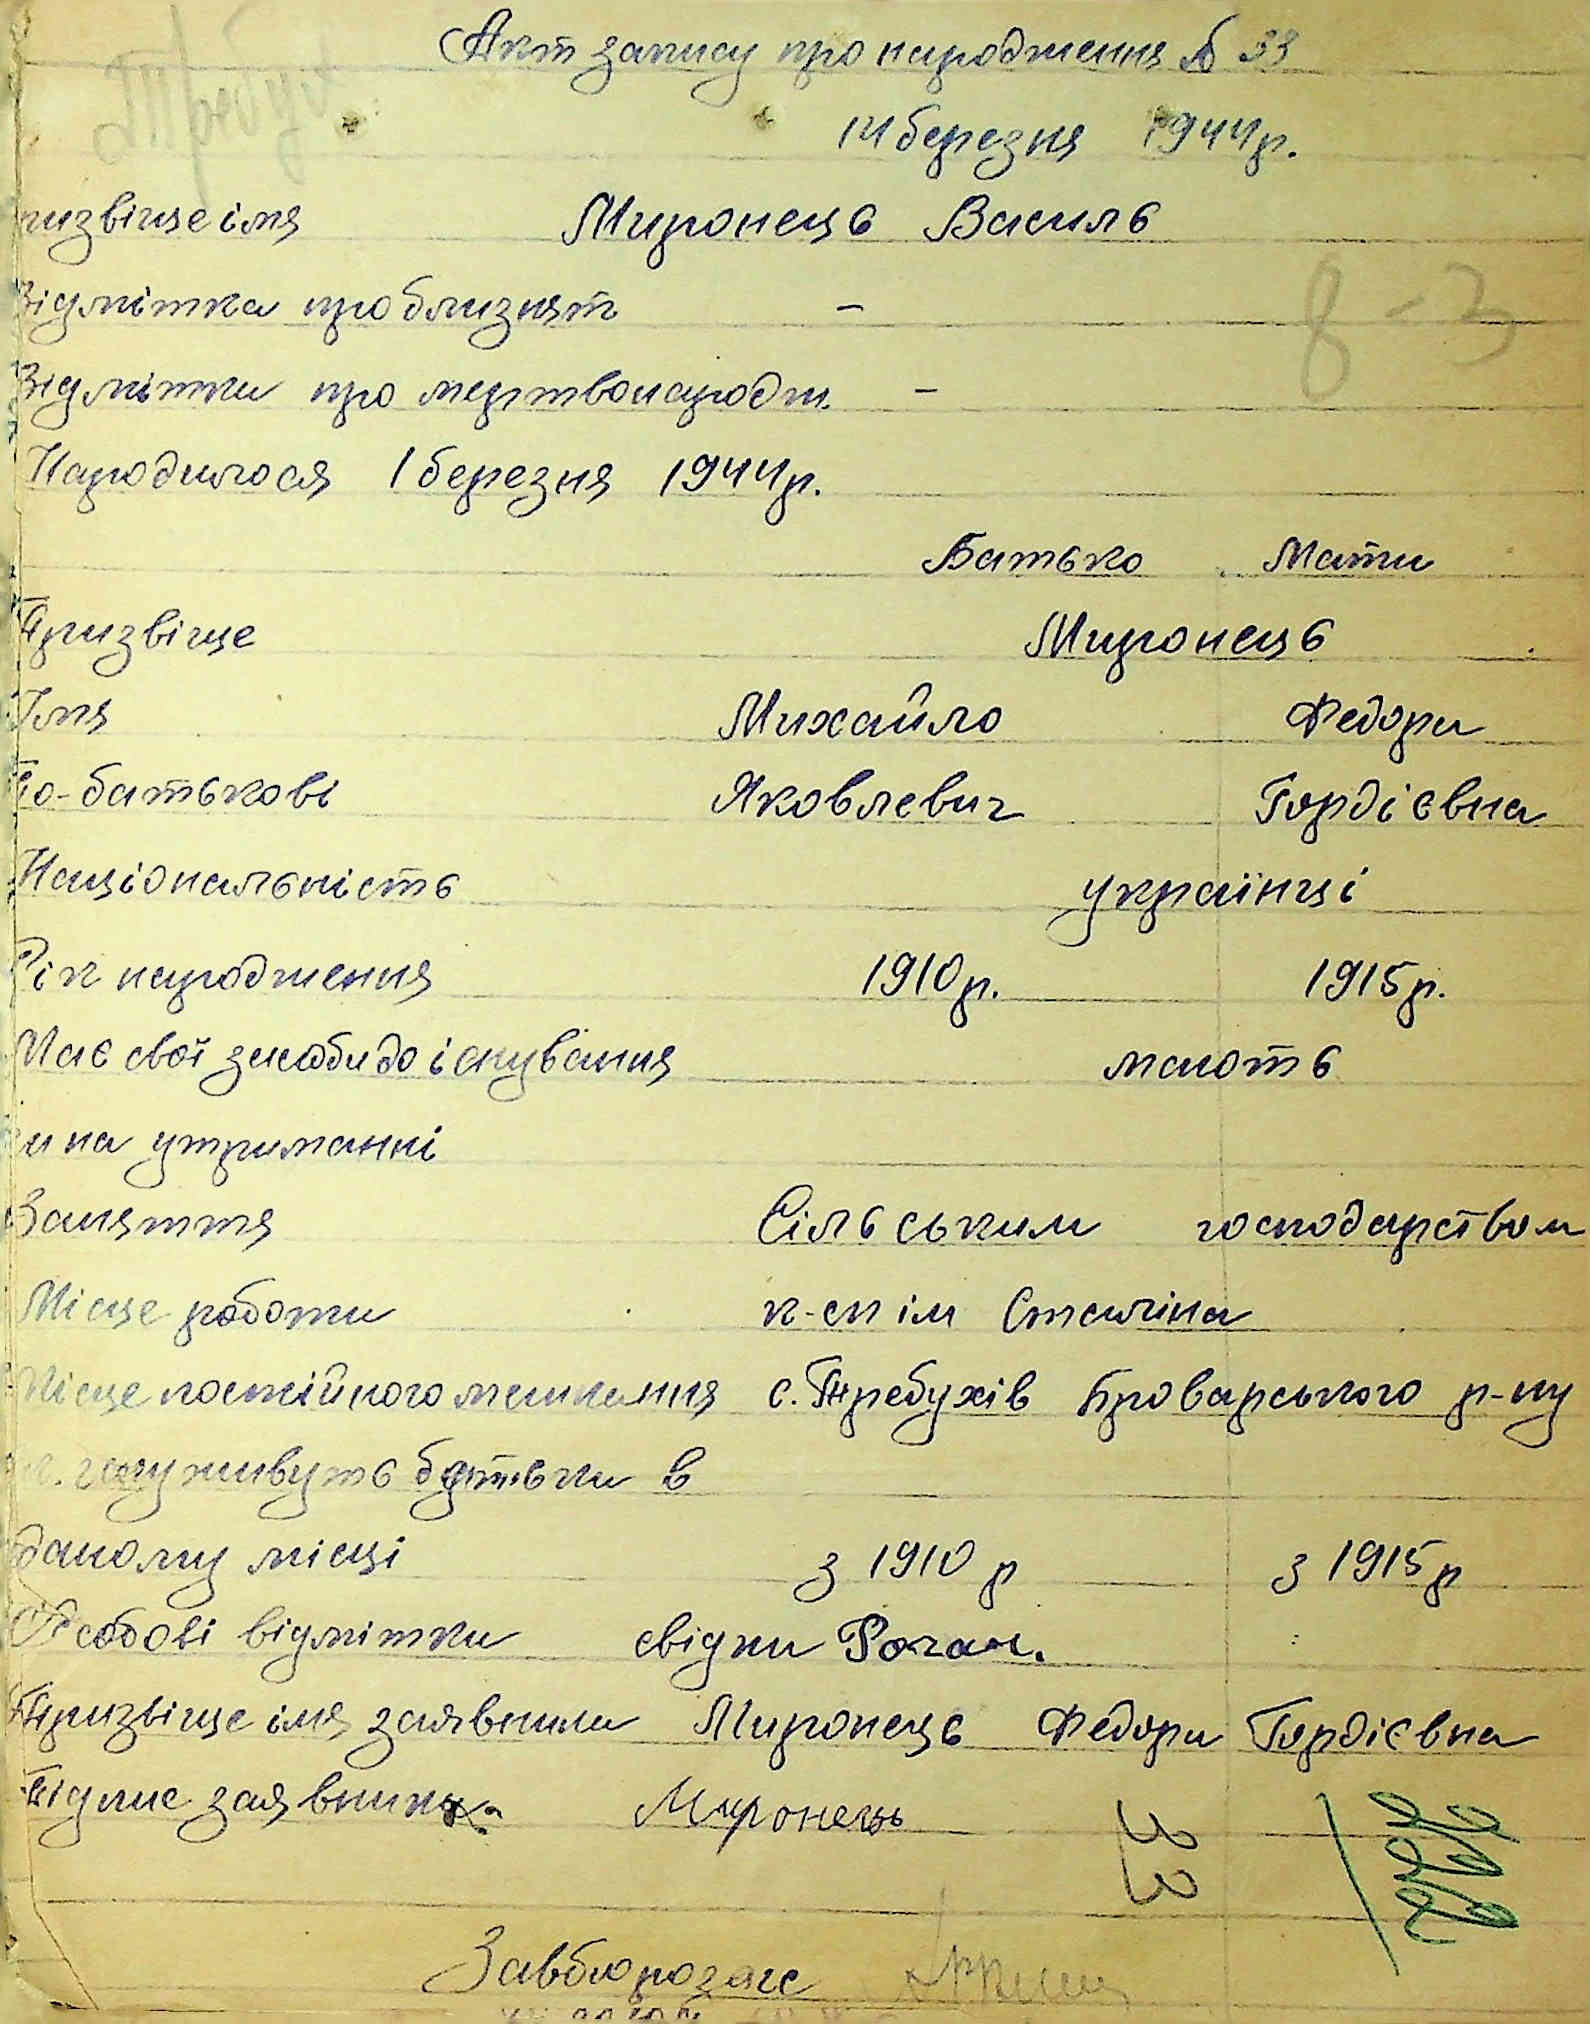 Акт запису про народження № 33
Требух
14 березня 1944 р.
призвіще імя Миронець Василь
Відмітка про близнят –
8-3
Відмітки про мертвонародж. –
Народилося 1 березня 1944 р.
Батько Мати
Призвіще Миронець
Імя Михайло Федора
По-батькові Яковлевич Гордієвна
Національність українці
Рік народження 1910 р. 1915 р.
Має свої засоби до існування мають
чи на утриманні
Заняття Сільським господарством
Місце роботи к-сп ім Сталіна
Місце постійного мешкання с. Требухів Броварського р-ну
живуть батьки в
даному місці з 1910 р з 1915 р
Особові відмітки свідки
Призвіще імя заявника Миронець Федора Гордієвна
Підпис заявника Миронець
33
222
Завбюрозагс